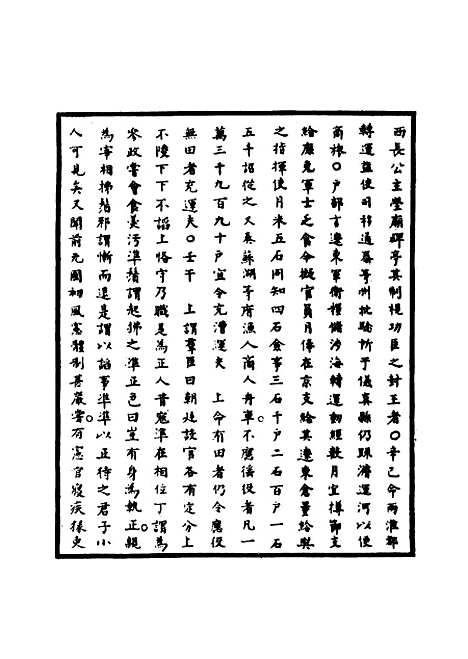 西長公主塋廟碑亭其制視功臣之封王者〇辛巳命兩淮都
轉運鹽使司移通泰等州批驗所于儀真縣仍疏濬運河以便
商旅〇戶部言遼東軍衛糧儲涉海轉運動經數月宜樽節支
給庶免軍士乏食令擬官員月俸在京支給其遼東倉量給與
之指揮使月米五石同知四石僉事三石千戶二石百戶一石
五千詔從之又真蘇湖等府漁人商人舟車不應徭役者凡一
萬三千九百九十戶宜令充漕運夫 上命有田者仍令應役
無田者充運夫〇壬午 上謂羣臣曰朝廷設官各有定分上
不陵下下不謟上恪守乃職是為正人昔寇準在相位丁謂為
參政嘗會食羹污準鬚謂起拂之準正色曰豈有身為執正親
為宰相拂鬚邪謂慚而退是謂以謟事準準以正待之君子小
人可見矣又聞前元國初風憲體制甚嚴嘗有憲官寢疾掾吏